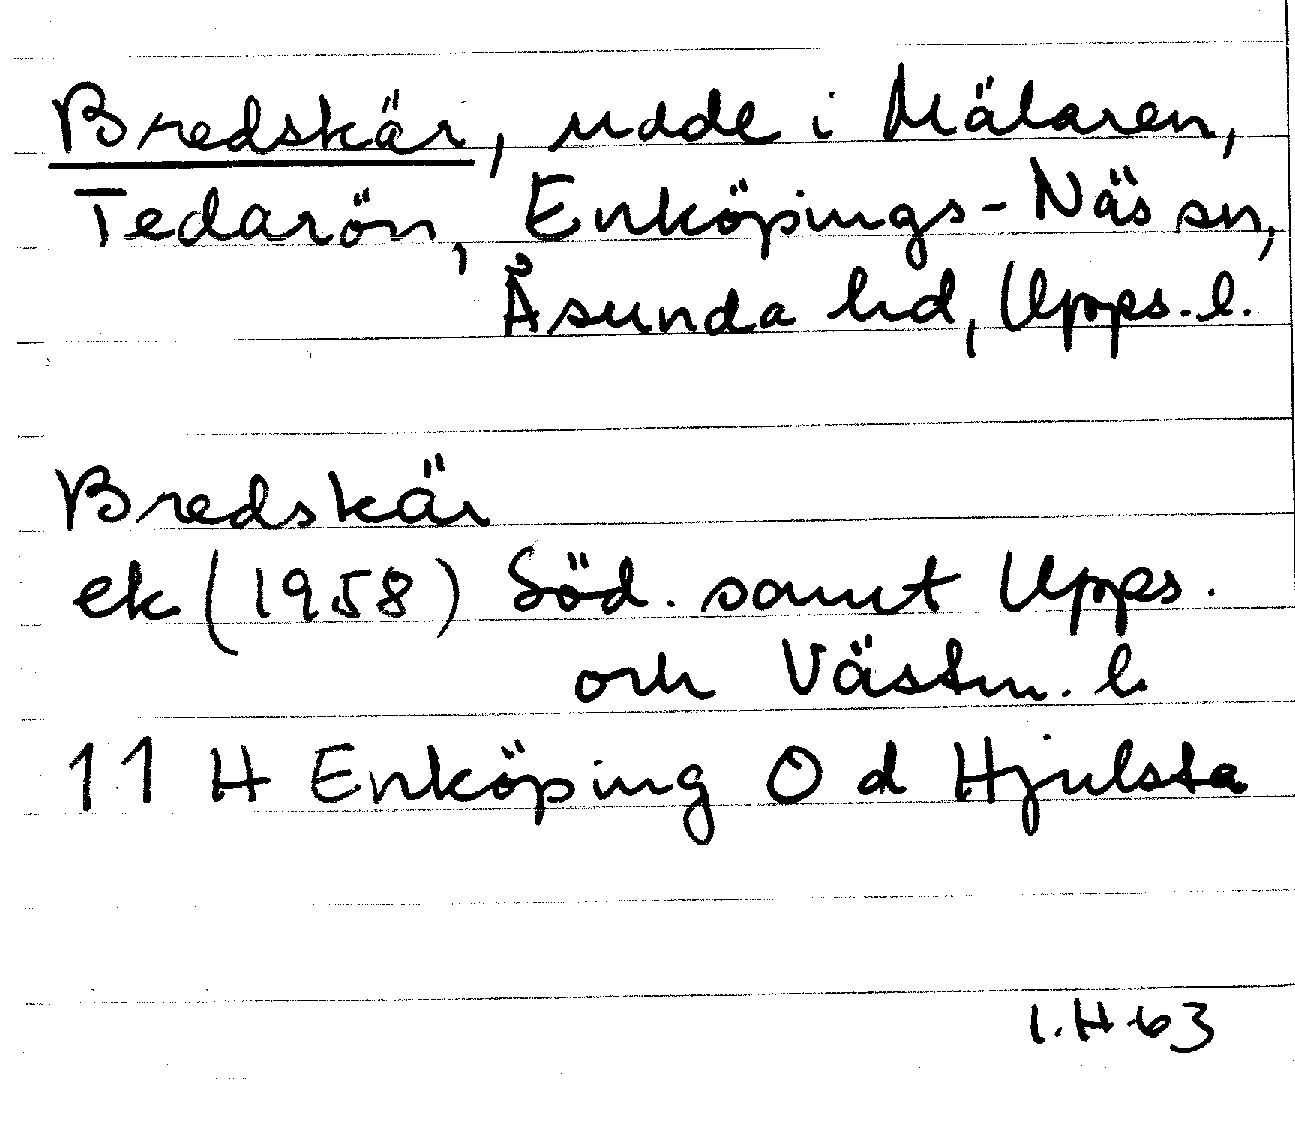 Bredskär, udde i Mälaren,
Tedarön, Enköpings-Näs sn,
Åsunda hd, Upps. l.
Bredskär
ek (1958) Söd. samt Upps.
och Västm. l.
11 H Enköping O d Hjulsta
I.H 63